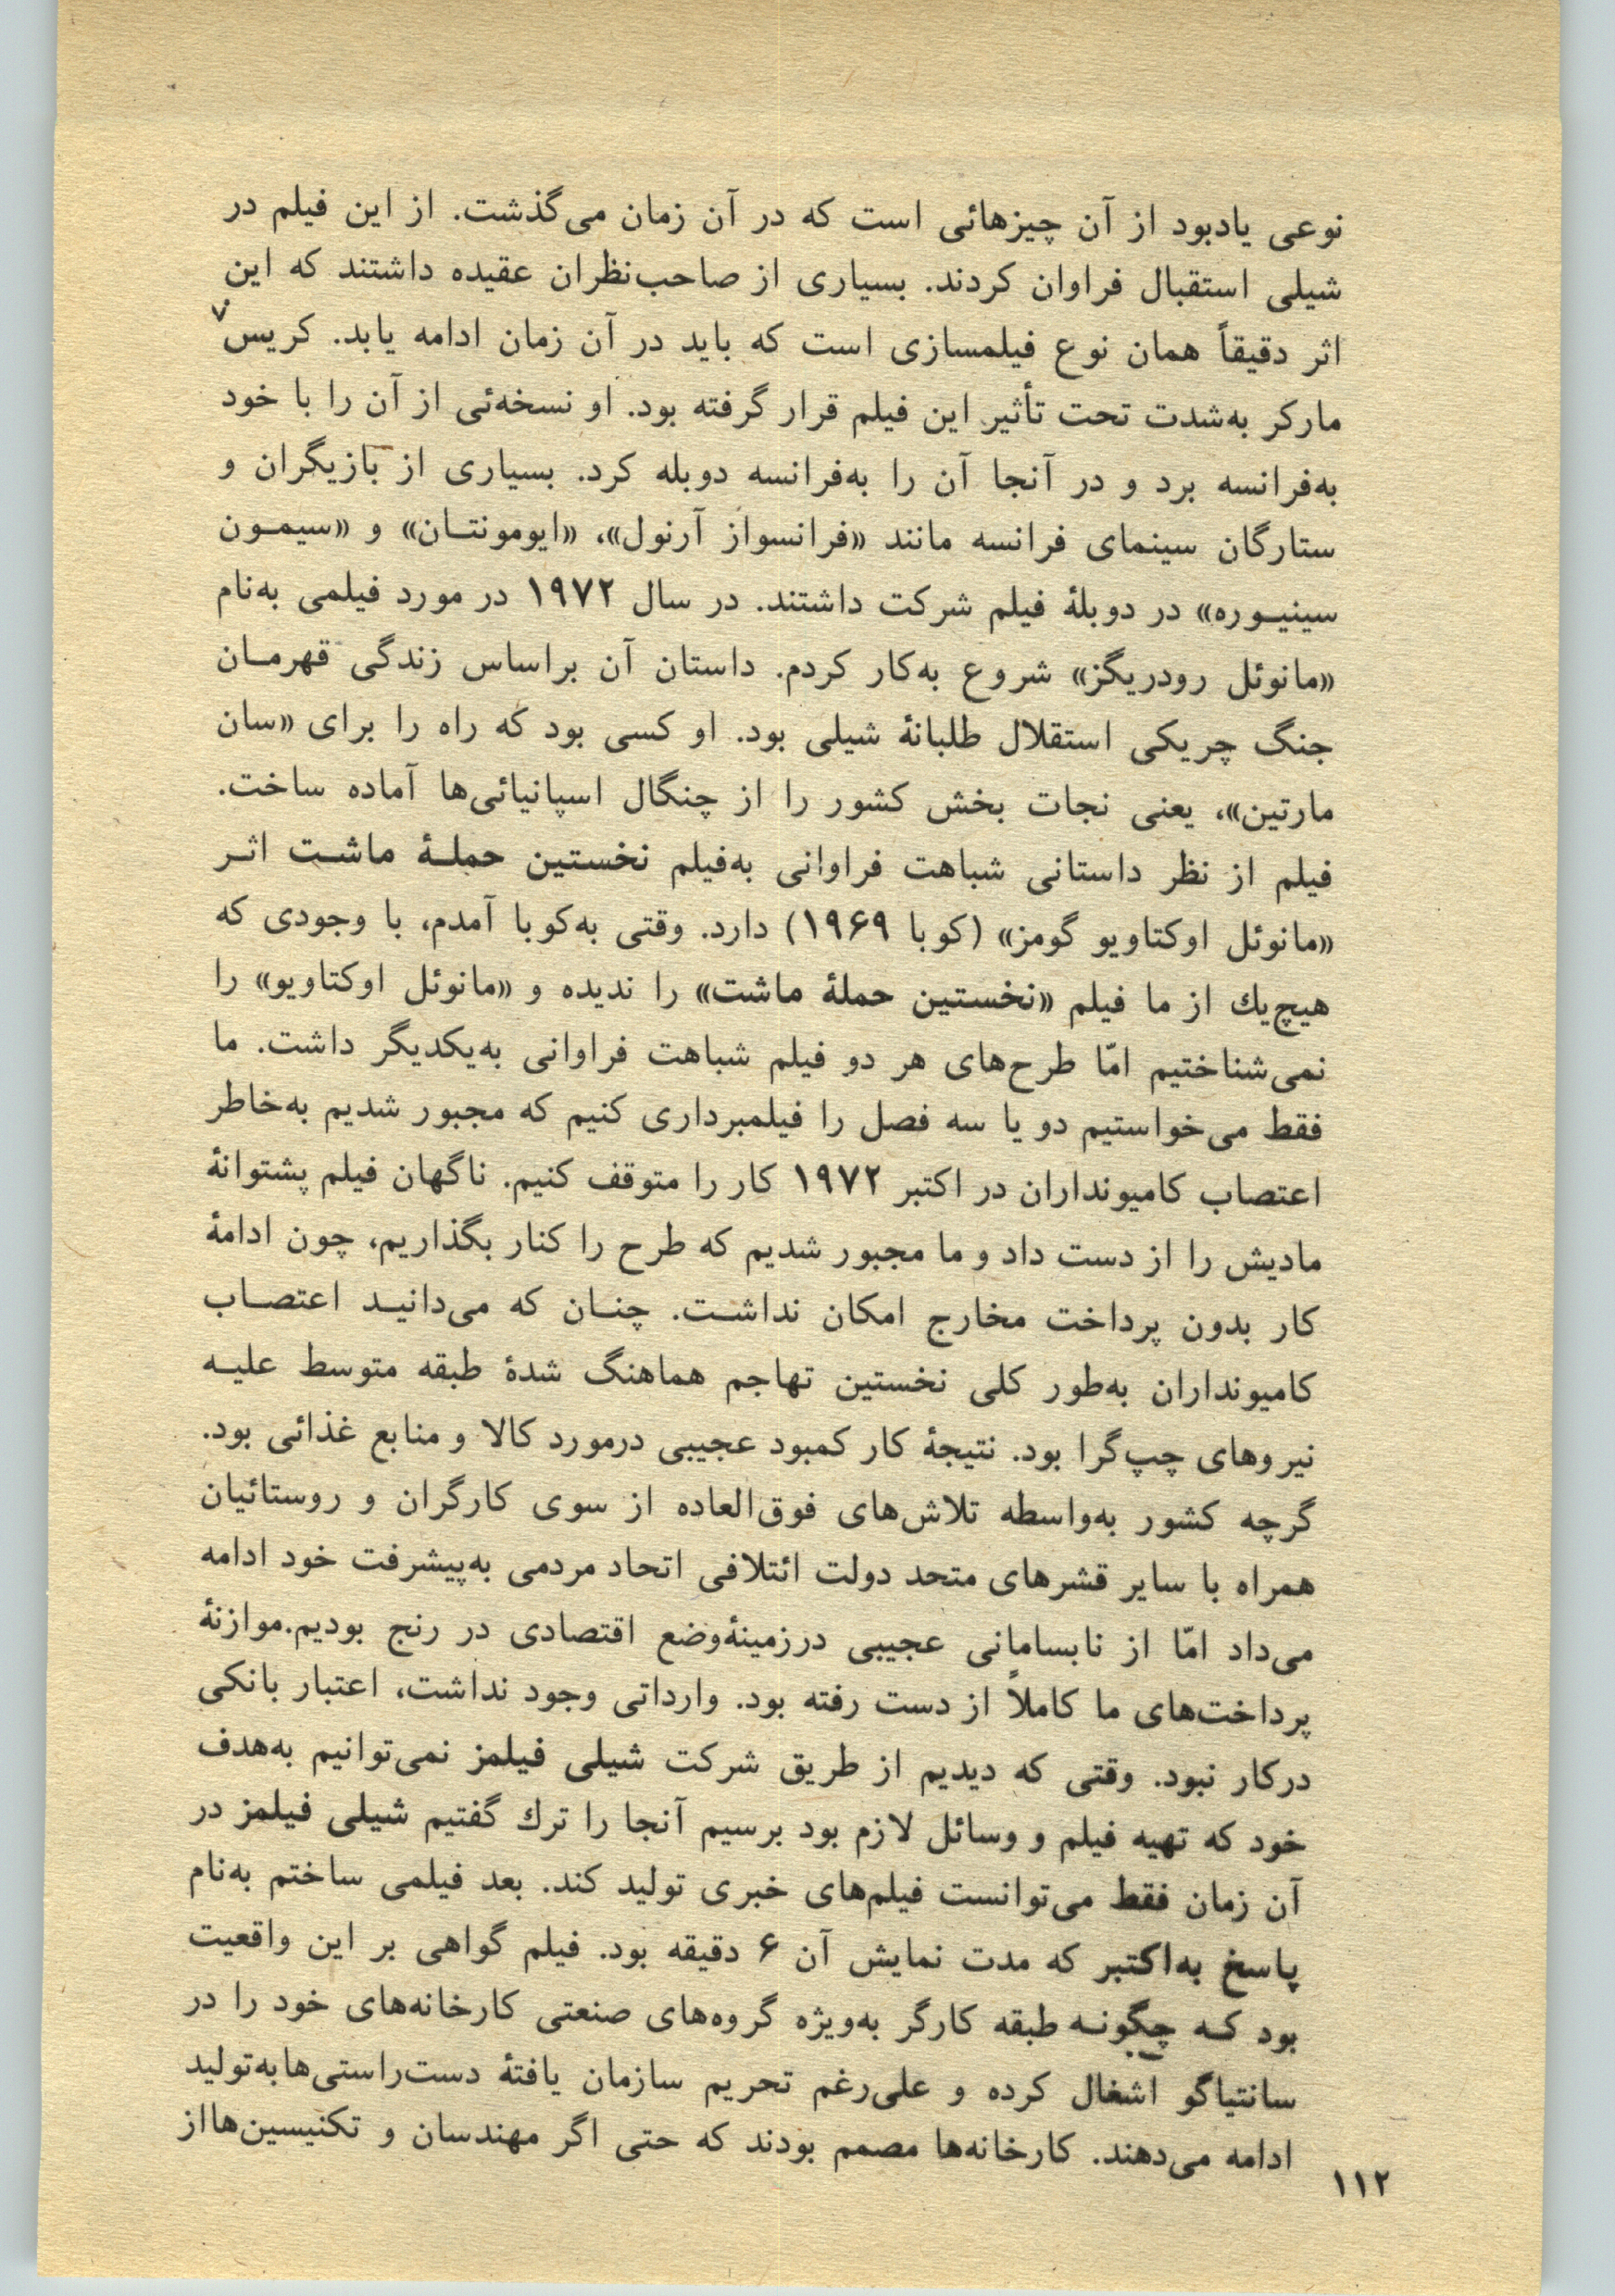 نوعی یادبود از آن چیزهائی است که در آن زمان می‌گذشت. از این فیلم در
شیلی استقبال فراوان کردند. بسیاری از صاحب‌نظران عقیده داشتند که این
اثر دقیقاً همان نوع فیلمسازی است که باید در آن زمان ادامه یابد. کریس۷
مارکر به‌شدت تحت تأثیر این فیلم قرار گرفته بود. او نسخه‌ئی از آن را با خود
به‌فرانسه برد و در آنجا آن را به‌فرانسه دوبله کرد. بسیاری از بازیگران و
ستارگان سینمای فرانسه مانند «فرانسواز آرنول»، «ایومونتـان» و «سیمـون
سینیـوره» در دوبلهٔ فیلم شرکت داشتند. در سال ۱۹۷۲ در مورد فیلمی به‌نام
«مانوئل رودریگز» شروع به‌کار کردم. داستان آن براساس زندگی قهرمـان
جنگ چریکی استقلال طلبانهٔ شیلی بود. او کسی بود که راه را برای «سان
مارتین»، یعنی نجات بخش کشور را از چنگال اسپانیائی‌ها آماده ساخت.
فیلم از نظر داستانی شباهت فراوانی به‌فیلم نخستین حملـهٔ ماشـت اثـر
«مانوئل اوکتاویو گومز» (کوبا ۱۹۶۹) دارد. وقتی به‌کوبا آمدم، با وجودی که
هیچ‌یك از ما فیلم «نخستین حملهٔ ماشت» را ندیده و «مانوئل اوکتاویو» را
نمی‌شناختیم امّا طرح‌های هر دو فیلم شباهت فراوانی به‌یکدیگر داشت. ما
فقط می‌خواستیم دو یا سه فصل را فیلمبرداری کنیم که مجبور شدیم به‌خاطر
اعتصاب کامیونداران در اکتبر ۱۹۷۲ کار را متوقف کنیم. ناگهان فیلم پشتوانهٔ
مادیش را از دست داد و ما مجبور شدیم که طرح را کنار بگذاریم، چون ادامهٔ
کار بدون پرداخت مخارج امکان نداشـت. چنـان که می‌دانیـد اعتصـاب
کامیونداران به‌طور کلی نخستین تهاجم هماهنگ شدهٔ طبقه متوسط علیـه
نیروهای چپ‌گرا بود. نتیجهٔ کار کمبود عجیبی درمورد کالا و منابع غذائی بود.
گرچه کشور به‌واسطه تلاش‌های فوق‌العاده از سوی کارگران و روستائیان
همراه با سایر قشرهای متحد دولت ائتلافی اتحاد مردمی به‌پیشرفت خود ادامه
می‌داد امّا از نابسامانی عجیبی درزمینهٔ‌وضع اقتصادی در رنج بودیم.موازنهٔ
پرداخت‌های ما کاملاً از دست رفته بود. وارداتی وجود نداشت، اعتبار بانکی
درکار نبود. وقتی که دیدیم از طریق شرکت شیلی فیلمز نمی‌توانیم به‌هدف
خود که تهیه فیلم و وسائل لازم بود برسیم آنجا را ترك گفتیم شیلی فیلمز در
آن زمان فقط می‌توانست فیلم‌های خبری تولید کند. بعد فیلمی ساختم به‌نام
پاسخ به‌اکتبر که مدت نمایش آن ۶ دقیقه بود. فیلم گواهی بر این واقعیت
بود کـه چگونـه طبقه کارگر به‌ویژه گروه‌های صنعتی کارخانه‌های خود را در
سانتیاگو اشغال کرده و علی‌رغم تحریم سازمان یافتهٔ دست‌راستی‌هابه‌تولید
ادامه می‌دهند. کارخانه‌ها مصمم بودند که حتی اگر مهندسان و تکنیسین‌هااز
۱۱۲